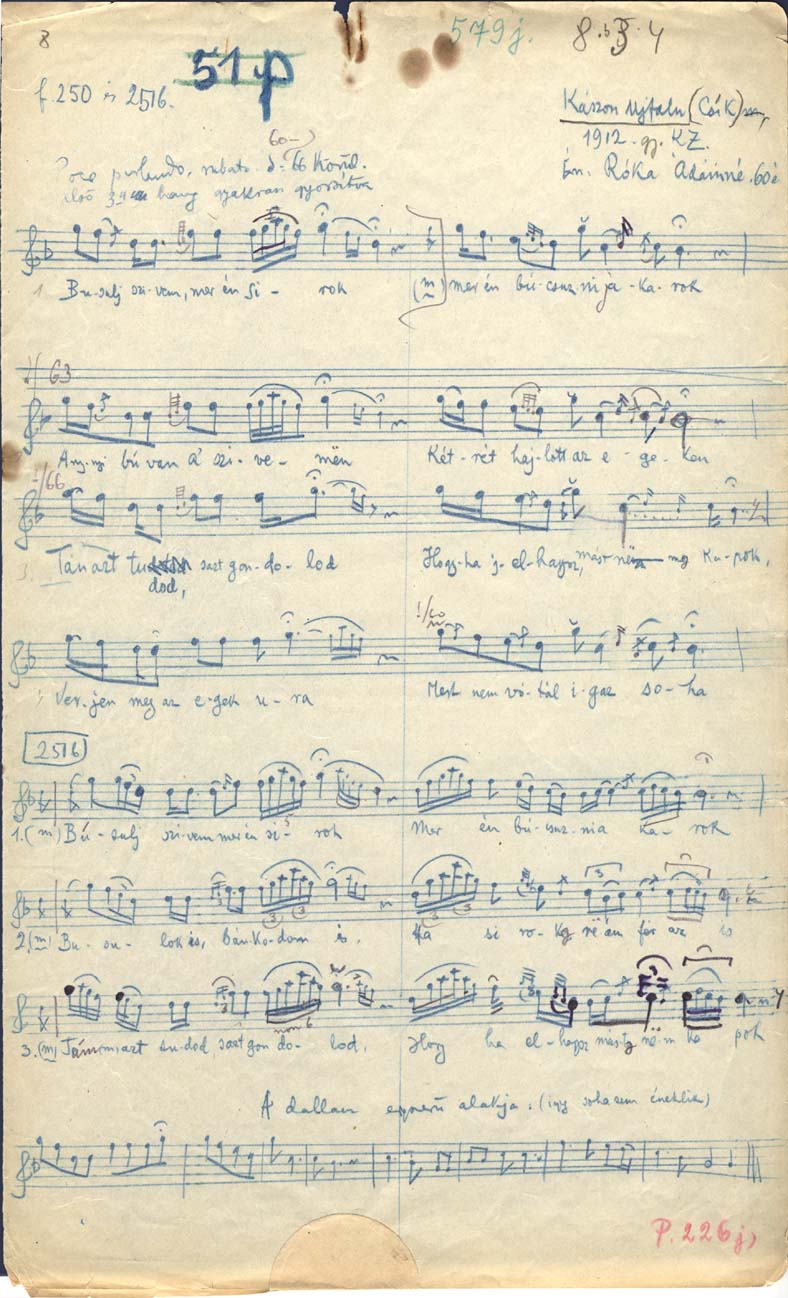 8
579 j.
51p
f. 250 és 2516.
Kászon Ujfalu (Csík)
1912. gy. KZ.
Én. Róka Ádámné. 60é
60
Poco parlando, rubato. 66 Körül.
első hang gyakran gyorsítva
1. Bu-sulj szi-vem, mer én si- rok (m) mer én bú-csuz-ni ja-ka-rok
63
Any-nyi bú van a' szi-ve- mën Két-rét haj-lott az e-ge-ken
66
3. Tán azt tu dod, gon-do-lod Hogy-ha el-hagysz, mást nëm ka-pok,
Ver-jen meg az e-gek u-ra Mert nem vó-tál i-gaz so-ha
2516
1. (m) Bú-sulj szi-vem mer én si- rok Mer én bú-csuz-nia ka-rok
2. (m) Bu-su-lok is, bán-ko-dom is, Ha si ro- is
3. (m) tu-dod azt gon do- lod, Hogy ha el-hagysz në-m ka pok
A dallam egyszerű alakja. (így soha sem éneklik)
P. 226 j)